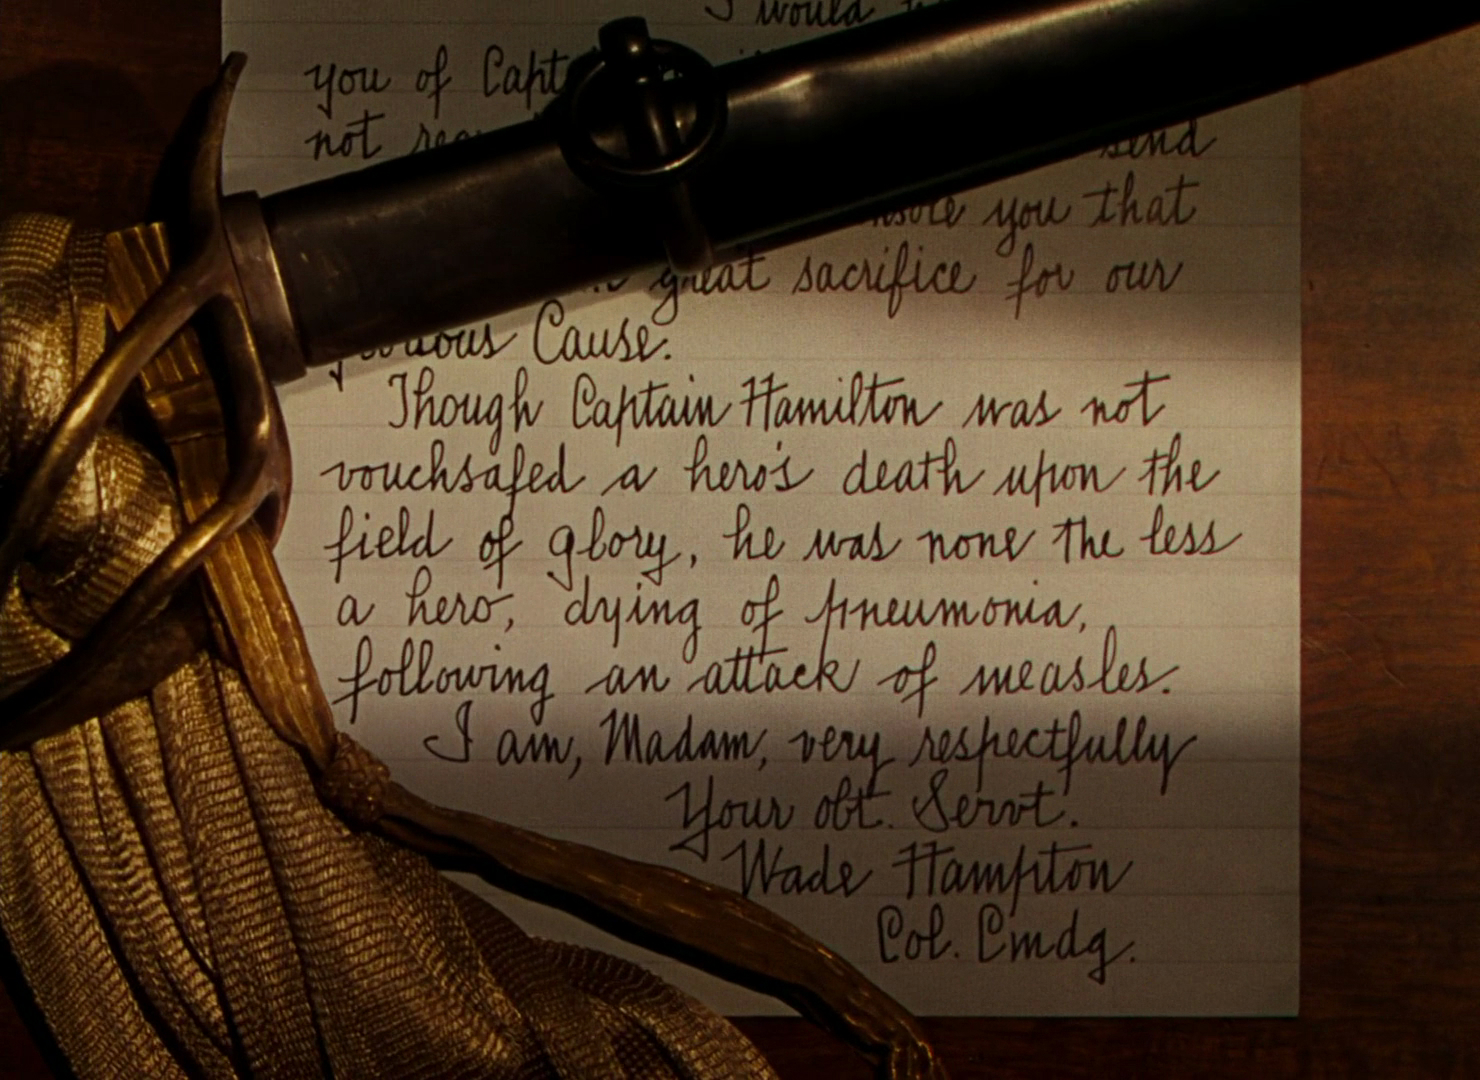 I would
you of Capt
not
send
you that
great sacrifice for our
Cause.
Though Captain Hamilton was not
vouchsafed a hero's death upon the
field of glory, he was none the less
a hero, dying of pneumonia,
following an attack of measles.
I am, Madam, very respectfully
Your obt. Servt.
Wade Hampton
Col. Cmdg.